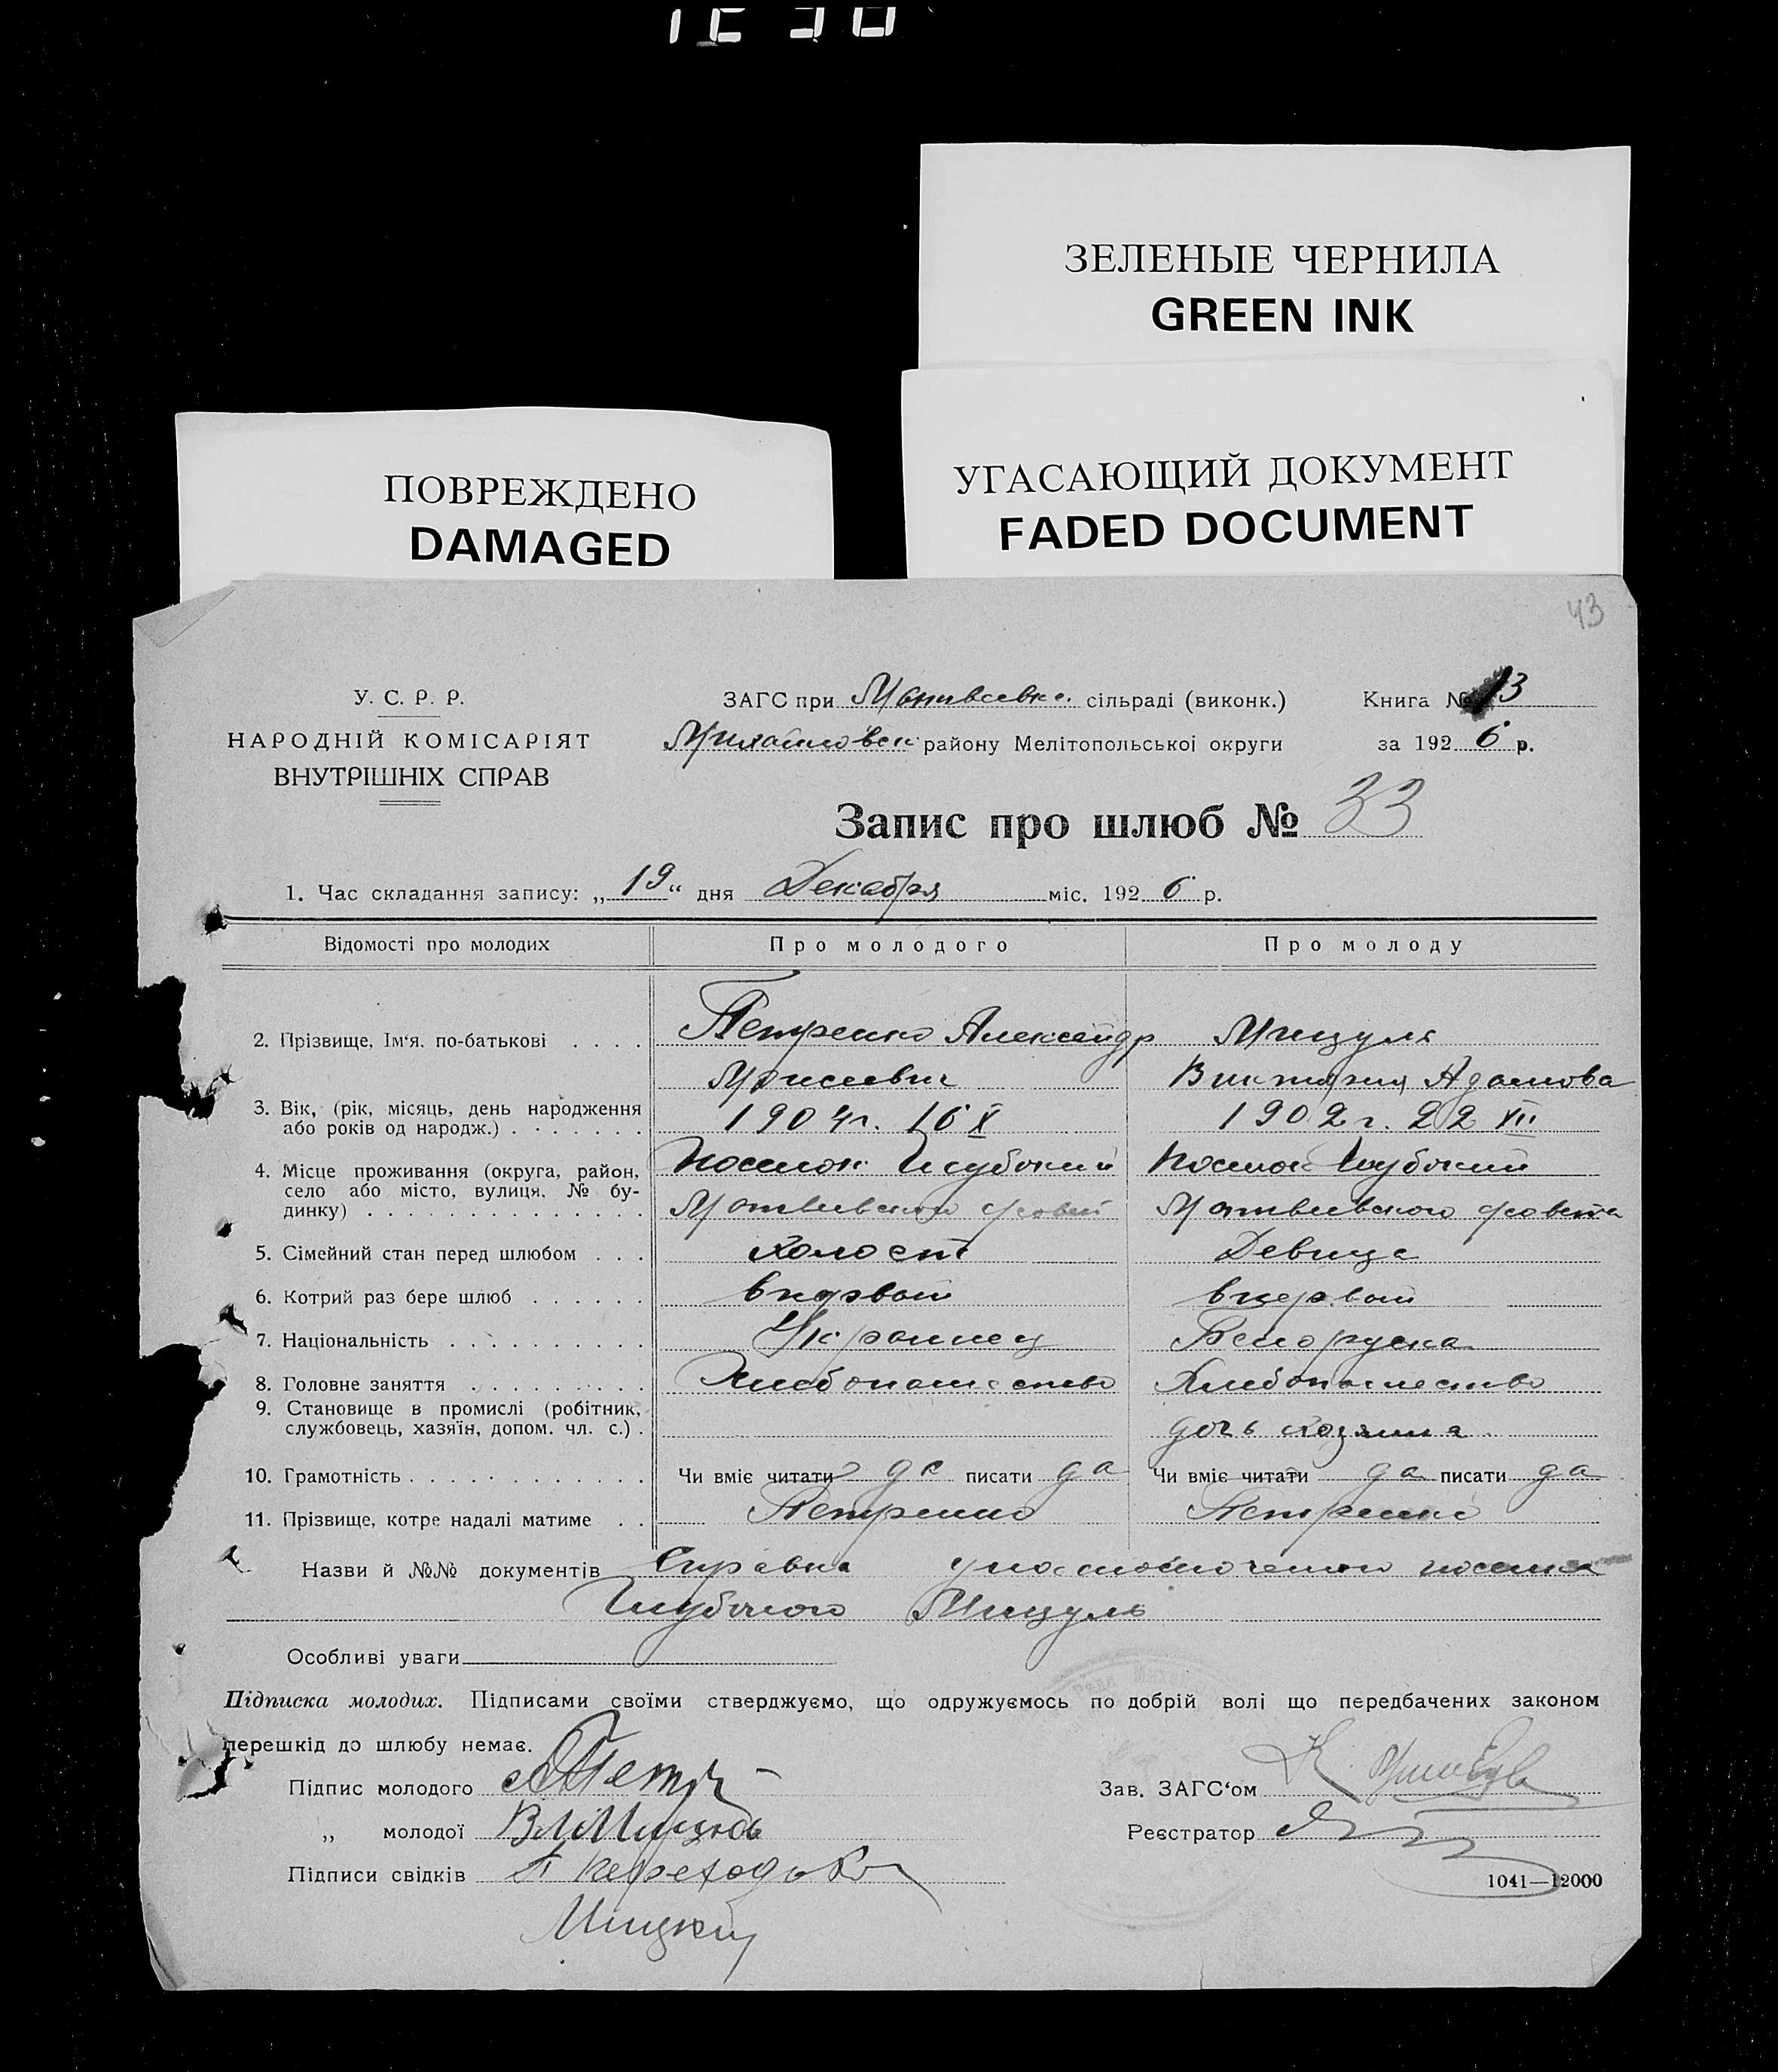 ЗЕЛЕНЫЕ ЧЕРНИЛА
GREEN INK
УГАСАЮЩИЙ ДОКУМЕНТ
FADED DOCUMENT
ПОВРЕЖДЕНО
DAMAGED
43
У. С. Р. Р.
НАРОДНІЙ КОМІСАРІЯТ
ВНУТРІШНІХ СПРАВ
ЗАГС при сільраді (виконк.) Книга № 13
Михайловск. району Мелітопольської округи за 1926 р.
Запис про шлюб № 33
1. Час складання запису: „19“ дня Декабря міс. 1926 р.
Відомості про молодих Про молодого Про молоду
2. Прізвище, Ім‘я, по-батькові . . . . Петренко Александр Мицуля
Моисеевич Виктория Адамова
3. Вік, (рік, місяць, день народження 1904 г. 16 X 1902 г. 22 XII
або років од народж.) . . . . . . .
4. Місце проживання (округа, район, Поселок Глубокий Поселок Глубокий
село або місто, вулиця, № бу-
динку) . . . . . . . . . . . . . . Матвеевского Матвеевского совета
5. Сімейний стан перед шлюбом . . . холост Девица
6. Котрий раз бере шлюб . . . . . . впервой впервой
7. Національність . . . . . . . . . . Украинец Белоруска
8. Головне заняття . . . . . . . . . Хлебопашество Хлебопашество
9. Становище в промислі (робітник,
службовець, хазяїн, допом. чл. с.) . дочь хозяина
10. Грамотність . . . . . . . . . . . . Чи вміє читати да писати да Чи вміє читати да писати да
11. Прізвище, котре надалі матиме . . Петренко Петренко
Назви й №№ документів Справка уполномоченого поселка
Глубокого Мицуль
Особливі уваги
Підписка молодих. Підписами своїми стверджуємо, що одружуємось по добрій волі що передбачених законом
перешкід до шлюбу немає.
Підпис молодого АПетр Зав. ЗАГС‘ом
„ молодої Реєстратор
Підписи свідків
1041—12000